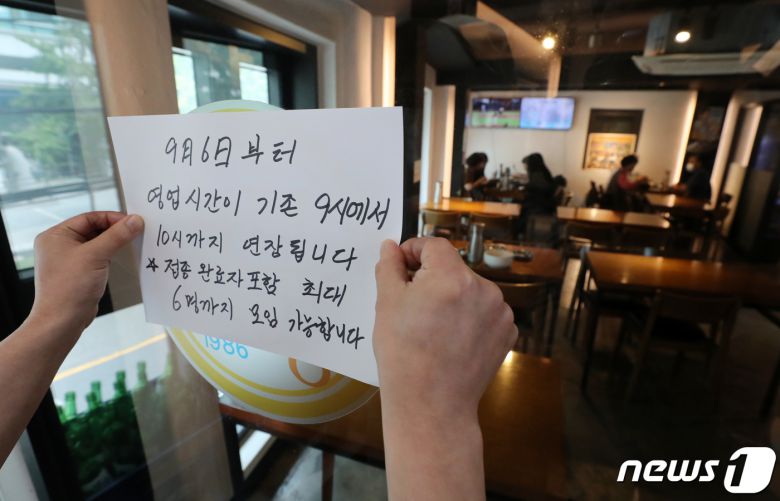 9月 6日 부터
영업시간이 기존 9시에서
10시까지 연장됩니다
* 접종 완료자포함 최대
6명까지 모임 가능합니다
1986
news1